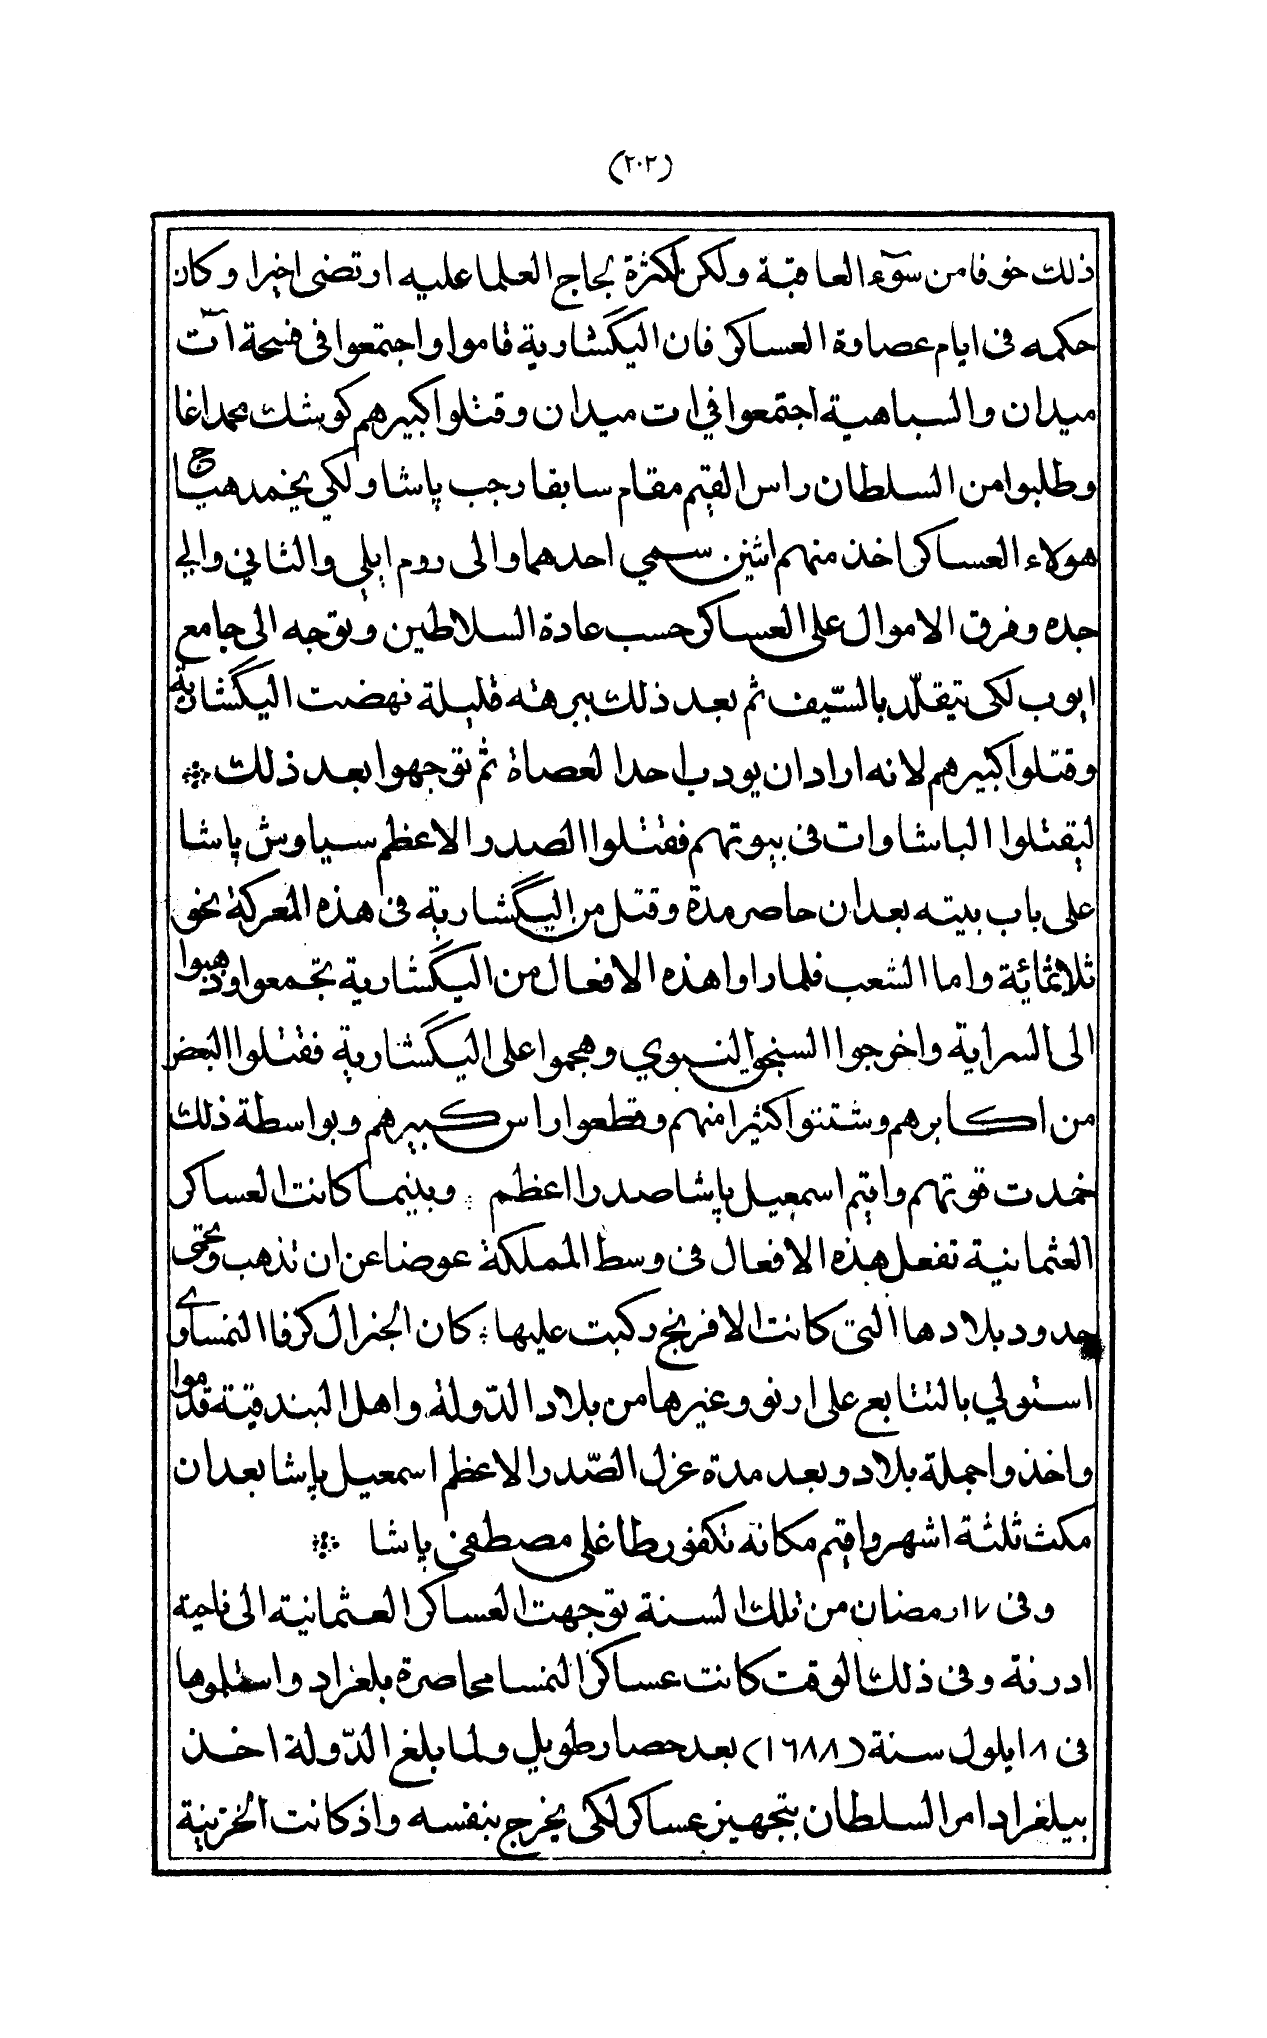 (٢٠٢)
ذلك خوفا من سوٓء العاقبة ولكن لكثرة لجاج العلما عليه ارتضى اخيرا وكان
حكمه فى ايام عصاوة العساكر فان اليكشارية قاموا واجتمعوا فى فسحة آت
ميدان والسباهية اجتمعوا في ات ميدان وقتلوا كبيرهم كوشك محمد اغا
وطلبوا من السلطان راس القيم مقام سابقا رجب پاشا ولكي يخمد هيجان
هولاء العساكر اخذ منهم اثنين سمي احدهما والى روم ايلي والثاني والي
جده وفرق الاموال على العساكر حسب عادة السلاطين وتوجه الى جامع
ايوب لكى يتقلّد بالسّيف ثم بعد ذلك ببرهة قليلة نهضت اليكشارية
وقتلوا كبيرهم لانه اراد ان يودب احد العصاة ثم توجهوا بعد ذلك
ليقتلوا الباشاوات فى بيوتهم فقتلوا الصدر الاعظم سياوش پاشا
على باب بيته بعد ان حاصر مدة وقتل من اليكشارية فى هذه المعركة نحو
ثلاثمائة واما الشعب فلما راوا هذه الافعال من اليكشارية تجمعوا وذهبوا
الى السراية واخرجوا السنجق النبوي وهجموا على اليكشارية فقتلوا البعض
من اكابرهم وشتتوا كثيرا منهم وقطعوا راس كبيرهم وبواسطة ذلك
خمدت قوتهم واقيم اسمعيل پاشا صدرا اعظم وبينما كانت العساكر
العثمانية تفعل هذه الافعال فى وسط المملكة عوضا عن ان تذهب وتحمى
حدود بلادها التى كانت الافرنج ركبت عليها كان الجنرال كرفا النمساوى
استولي بالتتابع على ارنو وغيرها من بلاد الدّولة واهل البندقية قدموا
واخذوا جملة بلاد وبعد مدة عزل الصّدر الاعظم اسمعيل پاشا بعد ان
مكث ثلثة اشهر واقيم مكانه تكفور طاغلى مصطفى پاشا
وفى ١٧ رمضان من تلك السنة توجهت العساكر العثمانية الى ناحية
ادرنة وفى ذلك الوقت كانت عساكر النمسا محاصرة بلغراد واستلموها
فى ٨ ايلول سنة (١٦٨٨) بعد حصار طويل ولما بلغ الدّولة اخذ
بيلغراد امر السلطان بتجهيز عساكر لكى يخرج بنفسه واذ كانت الخزينة